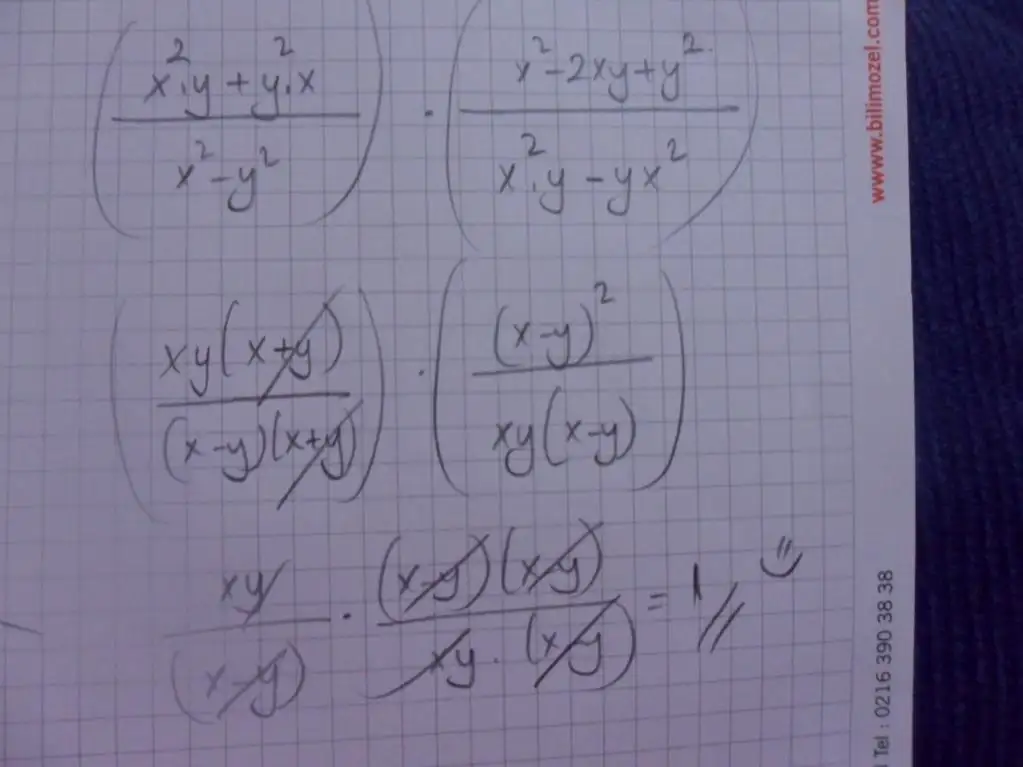 (x².y + y².x / x² - y²) . (x² - 2xy + y² / x².y - yx²)
(xy(x+y) / (x-y)(x+y)) . ((x-y)² / xy(x-y))
xy / (x-y) . (x-y)(x-y) / xy . (x-y) = 1 //
www.bilimozel.com
Tel : 0216 390 38 38